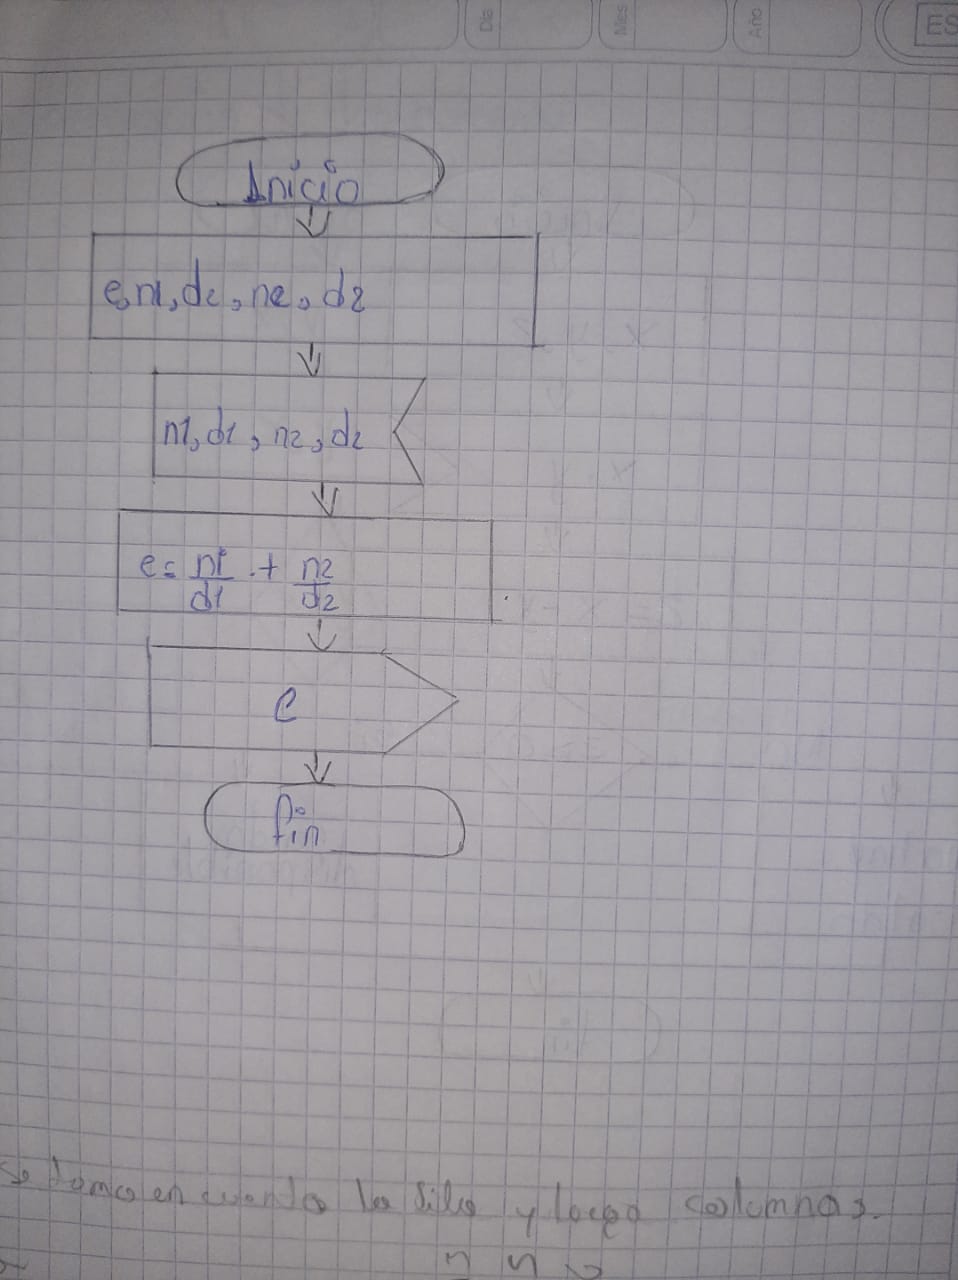 Dia Mes Año ES
Inicio
e, n1, d2, n2, d2
n1, d1, n2, d2
e = n1/d1 + n2/d2
e
fin
se toma en cuenta la fila y luego columnas.